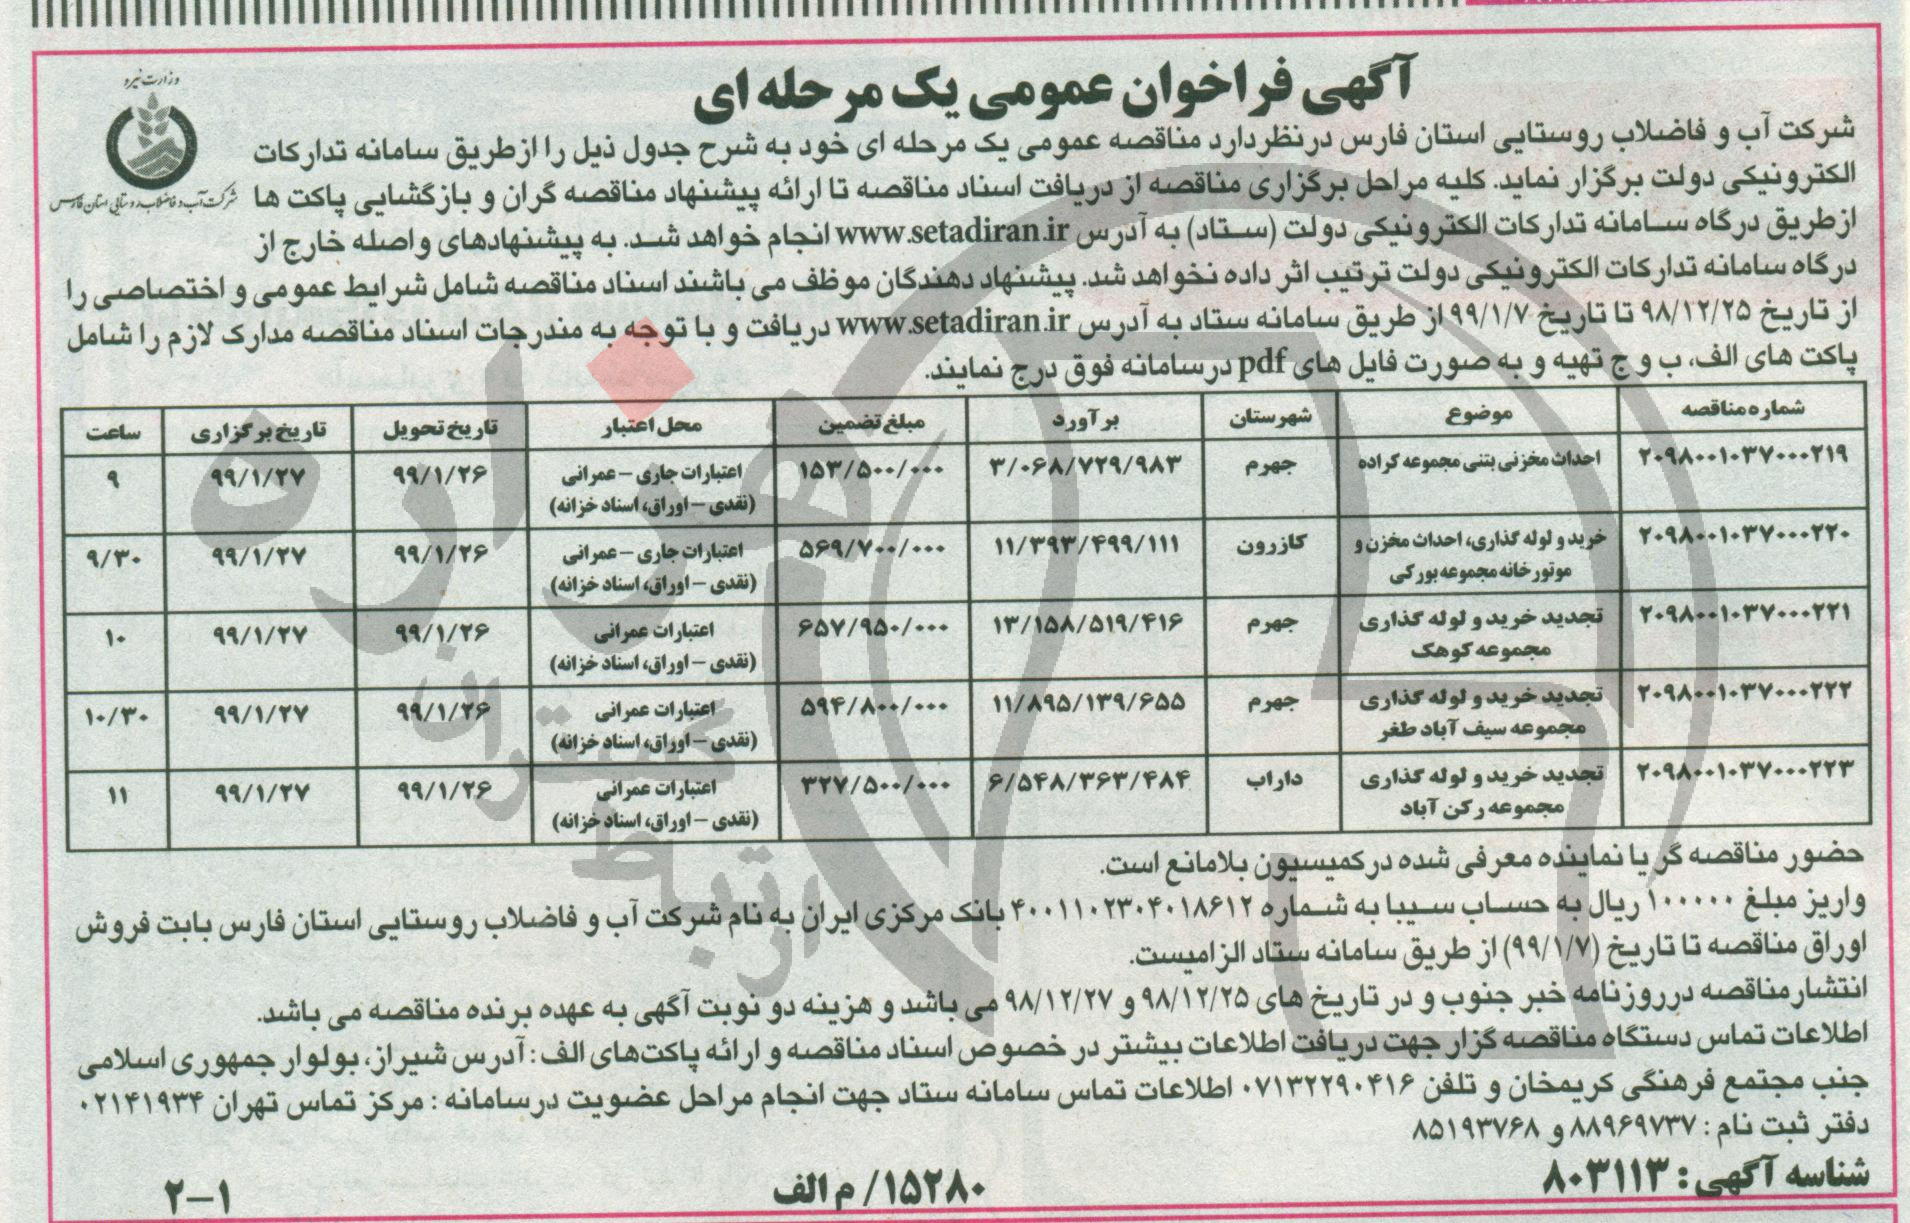 وزارت نیرو
شرکت آب و فاضلاب روستایی استان فارس
آگهی فراخوان عمومی یک مرحله ای
شرکت آب و فاضلاب روستایی استان فارس درنظردارد مناقصه عمومی یک مرحله ای خود به شرح جدول ذیل را ازطریق سامانه تدارکات
الکترونیکی دولت برگزار نماید. کلیه مراحل برگزاری مناقصه از دریافت اسناد مناقصه تا ارائه پیشنهاد مناقصه گران و بازگشایی پاکت ها
ازطریق درگاه سامانه تدارکات الکترونیکی دولت (ستاد) به آدرس www.setadiran.ir انجام خواهد شد. به پیشنهادهای واصله خارج از
درگاه سامانه تدارکات الکترونیکی دولت ترتیب اثر داده نخواهد شد. پیشنهاد دهندگان موظف می باشند اسناد مناقصه شامل شرایط عمومی و اختصاصی را
از تاریخ ۹۸/۱۲/۲۵ تا تاریخ ۹۹/۱/۷ از طریق سامانه ستاد به آدرس www.setadiran.ir دریافت و با توجه به مندرجات اسناد مناقصه مدارک لازم را شامل
پاکت های الف، ب و ج تهیه و به صورت فایل های pdf درسامانه فوق درج نمایند.
شماره مناقصه موضوع شهرستان برآورد مبلغ تضمین محل اعتبار تاریخ تحویل تاریخ برگزاری ساعت
۲۰۹۸۰۰۱۰۳۷۰۰۰۲۱۹ احداث مخزنی بتنی مجموعه کراده جهرم ۳/۰۶۸/۷۲۹/۹۸۳ ۱۵۳/۵۰۰/۰۰۰ اعتبارات جاری – عمرانی ۹۹/۱/۲۶ ۹۹/۱/۲۷ ۹
(نقدی – اوراق، اسناد خزانه)
۲۰۹۸۰۰۱۰۳۷۰۰۰۲۲۰ خرید و لوله گذاری، احداث مخزن و کازرون ۱۱/۳۹۳/۴۹۹/۱۱۱ ۵۶۹/۷۰۰/۰۰۰ اعتبارات جاری – عمرانی ۹۹/۱/۲۶ ۹۹/۱/۲۷ ۹/۳۰
موتورخانه مجموعه بورکی (نقدی – اوراق، اسناد خزانه)
۲۰۹۸۰۰۱۰۳۷۰۰۰۲۲۱ تجدید خرید و لوله گذاری جهرم ۱۳/۱۵۸/۵۱۹/۴۱۶ ۶۵۷/۹۵۰/۰۰۰ اعتبارات عمرانی ۹۹/۱/۲۶ ۹۹/۱/۲۷ ۱۰
مجموعه کوهک (نقدی – اوراق، اسناد خزانه)
۲۰۹۸۰۰۱۰۳۷۰۰۰۲۲۲ تجدید خرید و لوله گذاری جهرم ۱۱/۸۹۵/۱۳۹/۶۵۵ ۵۹۴/۸۰۰/۰۰۰ اعتبارات عمرانی ۹۹/۱/۲۶ ۹۹/۱/۲۷ ۱۰/۳۰
مجموعه سیف آباد طغر (نقدی – اوراق، اسناد خزانه)
۲۰۹۸۰۰۱۰۳۷۰۰۰۲۲۳ تجدید خرید و لوله گذاری داراب ۶/۵۴۸/۳۶۳/۴۸۴ ۳۲۷/۵۰۰/۰۰۰ اعتبارات عمرانی ۹۹/۱/۲۶ ۹۹/۱/۲۷ ۱۱
مجموعه رکن آباد (نقدی – اوراق، اسناد خزانه)
حضور مناقصه گر یا نماینده معرفی شده درکمیسیون بلامانع است.
واریز مبلغ ۱۰۰۰۰۰۰ ریال به حساب سیبا به شماره ۴۰۰۱۱۰۲۳۰۴۰۱۸۶۱۲ بانک مرکزی ایران به نام شرکت آب و فاضلاب روستایی استان فارس بابت فروش
اوراق مناقصه تا تاریخ (۹۹/۱/۷) از طریق سامانه ستاد الزامیست.
انتشارمناقصه درروزنامه خبر جنوب و در تاریخ های ۹۸/۱۲/۲۵ و ۹۸/۱۲/۲۷ می باشد و هزینه دو نوبت آگهی به عهده برنده مناقصه می باشد.
اطلاعات تماس دستگاه مناقصه گزار جهت دریافت اطلاعات بیشتر در خصوص اسناد مناقصه و ارائه پاکت‌های الف : آدرس شیراز، بولوار جمهوری اسلامی
جنب مجتمع فرهنگی کریمخان و تلفن ۰۷۱۳۲۲۹۰۴۱۶ اطلاعات تماس سامانه ستاد جهت انجام مراحل عضویت درسامانه : مرکز تماس تهران ۰۲۱۴۱۹۳۴
دفتر ثبت نام : ۸۸۹۶۹۷۳۷ و ۸۵۱۹۳۷۶۸
شناسه آگهی : ۸۰۳۱۱۳
۱۵۲۸۰/ م الف
۲-۱
هزاره
ارتباط گستران